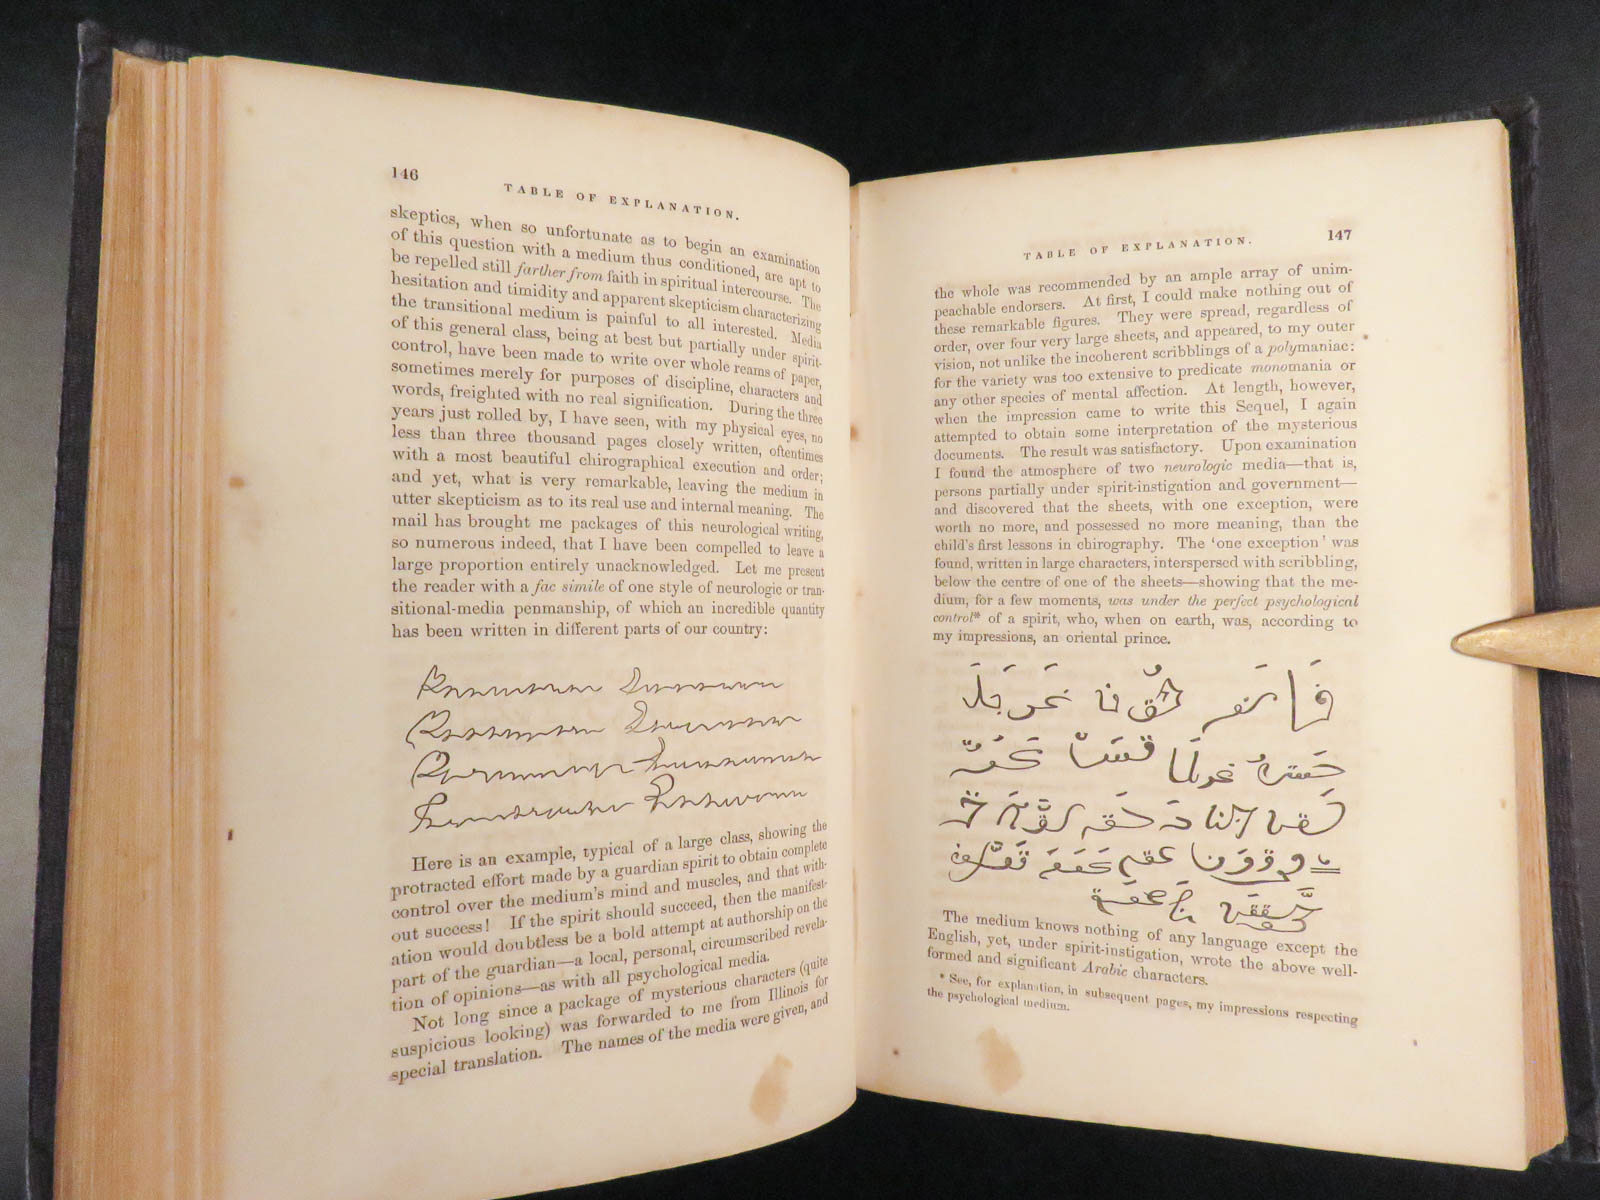 146
TABLE OF EXPLANATION.
skeptics, when so unfortunate as to begin an examination
of this question with a medium thus conditioned, are apt to
be repelled still farther from faith in spiritual intercourse. The
hesitation and timidity and apparent skepticism characterizing
the transitional medium is painful to all interested. Media
of this general class, being at best but partially under spirit-
control, have been made to write over whole reams of paper,
sometimes merely for purposes of discipline, characters and
words, freighted with no real signification. During the three
years just rolled by, I have seen, with my physical eyes, no
less than three thousand pages closely written, oftentimes
with a most beautiful chirographical execution and order;
and yet, what is very remarkable, leaving the medium in
utter skepticism as to its real use and internal meaning. The
mail has brought me packages of this neurological writing,
so numerous indeed, that I have been compelled to leave a
large proportion entirely unacknowledged. Let me present
the reader with a fac simile of one style of neurologic or tran-
sitional-media penmanship, of which an incredible quantity
has been written in different parts of our country:
Here is an example, typical of a large class, showing the
protracted effort made by a guardian spirit to obtain complete
control over the medium's mind and muscles, and that with-
out success! If the spirit should succeed, then the manifest-
ation would doubtless be a bold attempt at authorship on the
part of the guardian—a local, personal, circumscribed revela-
tion of opinions—as with all psychological media.
Not long since a package of mysterious characters (quite
suspicious looking) was forwarded to me from Illinois for
special translation. The names of the media were given, and
TABLE OF EXPLANATION.
147
the whole was recommended by an ample array of unim-
peachable endorsers. At first, I could make nothing out of
these remarkable figures. They were spread, regardless of
order, over four very large sheets, and appeared, to my outer
vision, not unlike the incoherent scribblings of a polymaniac:
for the variety was too extensive to predicate monomania or
any other species of mental affection. At length, however,
when the impression came to write this Sequel, I again
attempted to obtain some interpretation of the mysterious
documents. The result was satisfactory. Upon examination
I found the atmosphere of two neurologic media—that is,
persons partially under spirit-instigation and government—
and discovered that the sheets, with one exception, were
worth no more, and possessed no more meaning, than the
child's first lessons in chirography. The 'one exception' was
found, written in large characters, interspersed with scribbling,
below the centre of one of the sheets—showing that the me-
dium, for a few moments, was under the perfect psychological
control* of a spirit, who, when on earth, was, according to
my impressions, an oriental prince.
The medium knows nothing of any language except the
English, yet, under spirit-instigation, wrote the above well-
formed and significant Arabic characters.
* See, for explanation, in subsequent pages, my impressions respecting
the psychological medium.